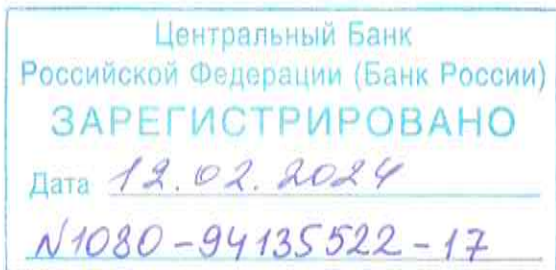 Центральный Банк
Российской Федерации (Банк России)
ЗАРЕГИСТРИРОВАНО
Дата 12.02.2024
N1080-94135522-17